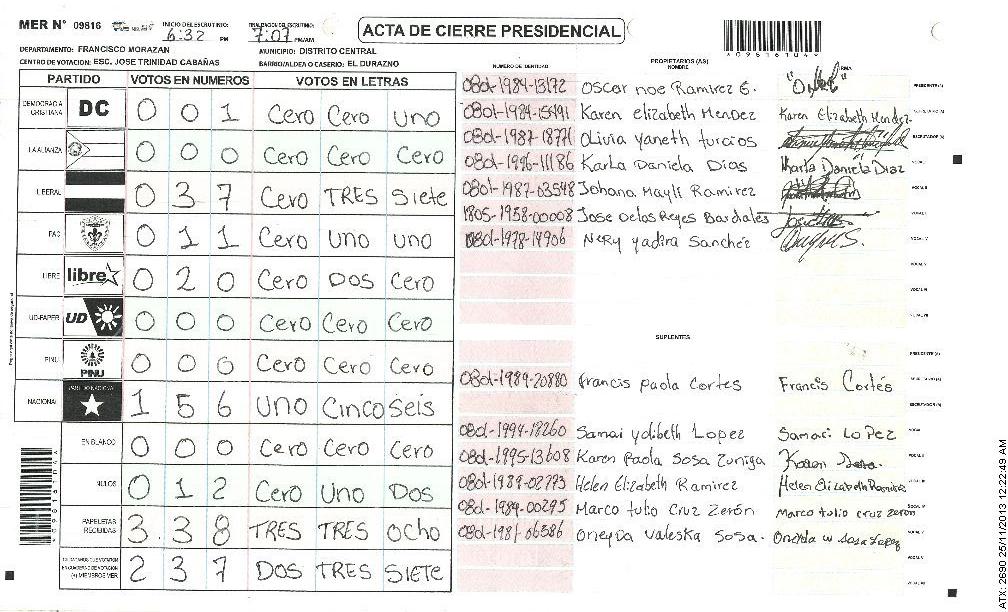 MER N° 09816
INICIO DEL ESCRUTINIO:
6:32 PM
FINALIZACION DEL ESCRUTINIO:
7:07 PM/AM
ACTA DE CIERRE PRESIDENCIAL
DEPARTAMENTO: FRANCISCO MORAZAN
MUNICIPIO: DISTRITO CENTRAL
CENTRO DE VOTACION: ESC. JOSE TRINIDAD CABAÑAS
BARRIO/ALDEA O CASERIO: EL DURAZNO
PARTIDO VOTOS EN NUMEROS VOTOS EN LETRAS
DEMOCRACIA CRISTIANA DC 0 0 1 Cero Cero uno
LA ALIANZA 0 0 0 Cero Cero Cero
LIBERAL 0 3 7 Cero TRES Siete
PAC 0 1 1 Cero uno uno
LIBRE libre 0 2 0 Cero DOS Cero
UD-FAPER UD 0 0 0 Cero Cero Cero
PINU PINU 0 0 0 Cero Cero Cero
NACIONAL PARTIDO NACIONAL 1 5 6 uno Cinco seis
EN BLANCO 0 0 0 Cero Cero Cero
NULOS 0 1 2 Cero Uno Dos
PAPELETAS RECIBIDAS 3 3 8 TRES TRES Ocho
2 3 7 DOS TRES SIETE
NUMERO DE IDENTIDAD
PROPIETARIOS (AS)
NOMBRE
FIRMA
0801-1984-13172 Oscar noe Ramirez E. PRESIDENTE (A)
0801-1984-15491 Karen elizabeth Mendez Karen Elizabeth Mendez SECRETARIO (A)
0801-1987-18771 Olivia yaneth turcios ESCRUTADOR (A)
0801-1996-11186 Karla Daniela Dias Karla Daniela Diaz VOCAL I
0801-1987-03548 Johana Mayli Ramirez VOCAL II
1805-1958-00008 Jose Delos Reyes Bardales
0801-1978-14906 Nery yadira Sanchez VOCAL IV
VOCAL V
VOCAL VI
VOCAL VII
SUPLENTES
PRESIDENTE (A)
0801-1989-20880 francis paola Cortes Francis Cortés SECRETARIO (A)
ESCRUTADOR (A)
0801-1994-18260 Samai yolibeth Lopez Samari LoPez VOCAL I
0801-1995-13608 Karen Paola Sosa Zuniga Karen Sosa. VOCAL II
0801-1989-02773 Helen Elizabeth Ramirez Helen Elizabeth Ramirez VOCAL III
0801-1989-00295 Marco tulio Cruz Zerón Marco tulio cruz Zeron VOCAL IV
0801-1981-06586 oneyda Valeska Sosa. VOCAL V
VOCAL VI
VOCAL VII
ATX: 2690 25/11/2013 12:22:49 AM